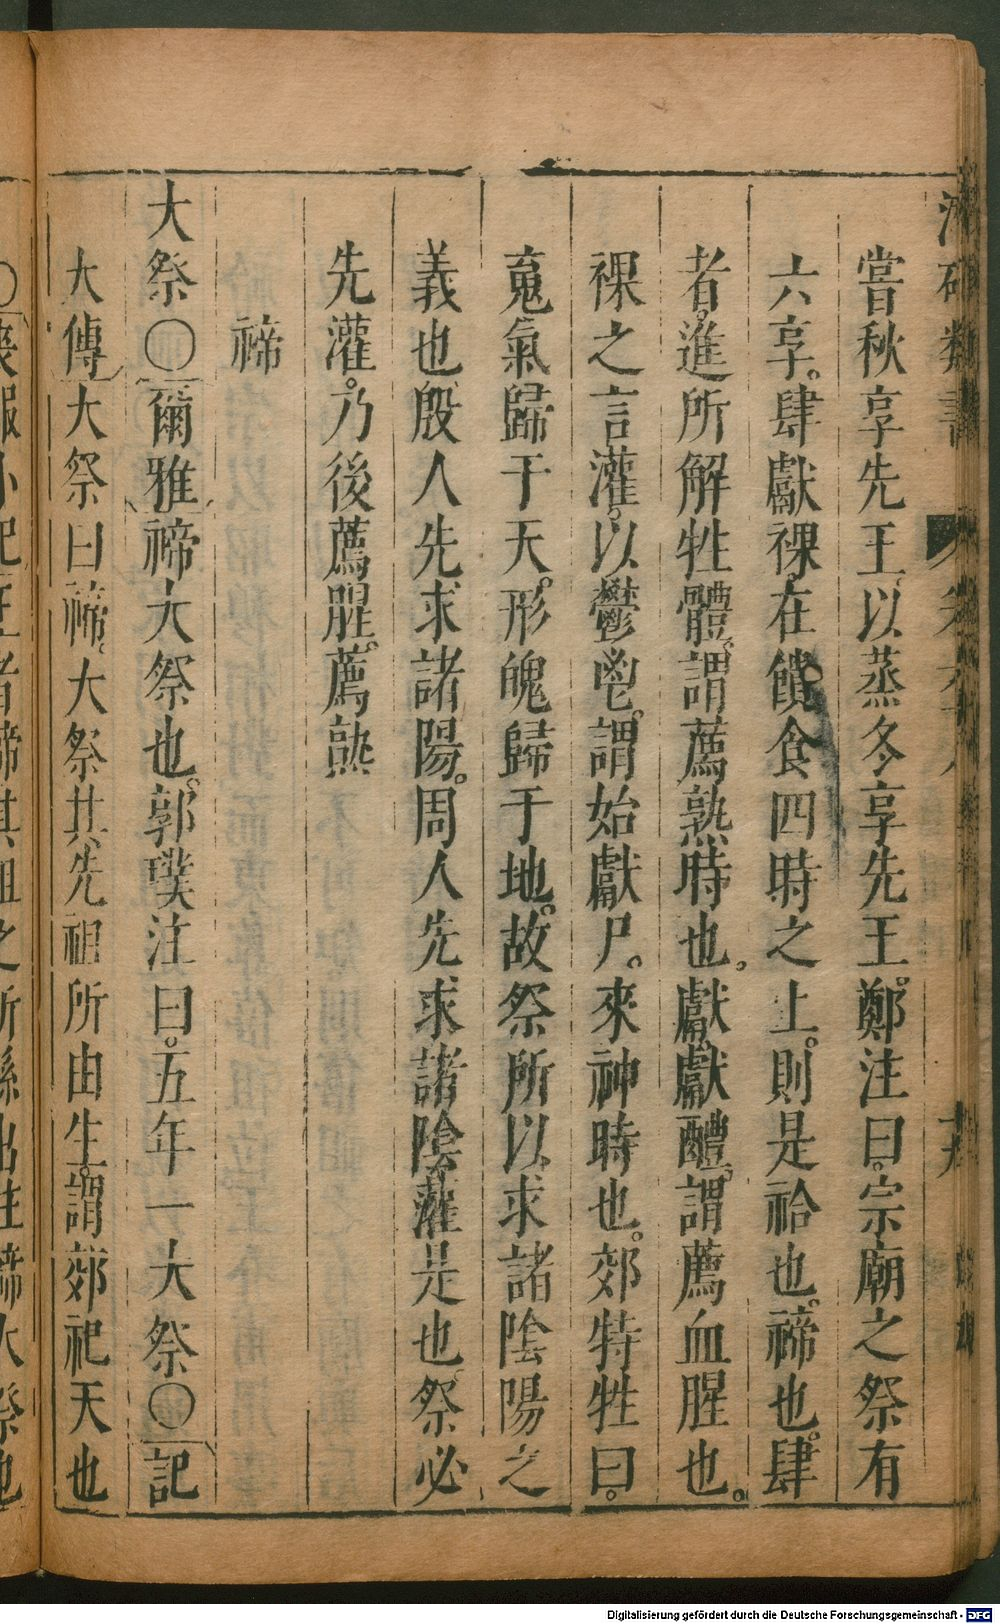 嘗秋享先王以蒸冬享先王鄭注曰宗廟之祭有
六享肆獻祼在饋食四時之上則是祫也禘也肆
者進所解牲體謂薦熟時也獻獻醴謂薦血腥也
祼之言灌以鬱鬯謂始獻尸來神時也郊特牲曰
䰟氣歸于天形魄歸于地故祭所以求諸陰陽之
義也殷人先求諸陽周人先求諸陰灌是也祭必
先灌乃後薦腥薦熟
禘
大祭〇爾雅禘大祭也郭璞注曰五年一大祭〇記
大傳大祭曰禘大祭其先祖所由生謂郊祀天也
Digitalisierung gefördert durch die Deutsche Forschungsgemeinschaft - DFG